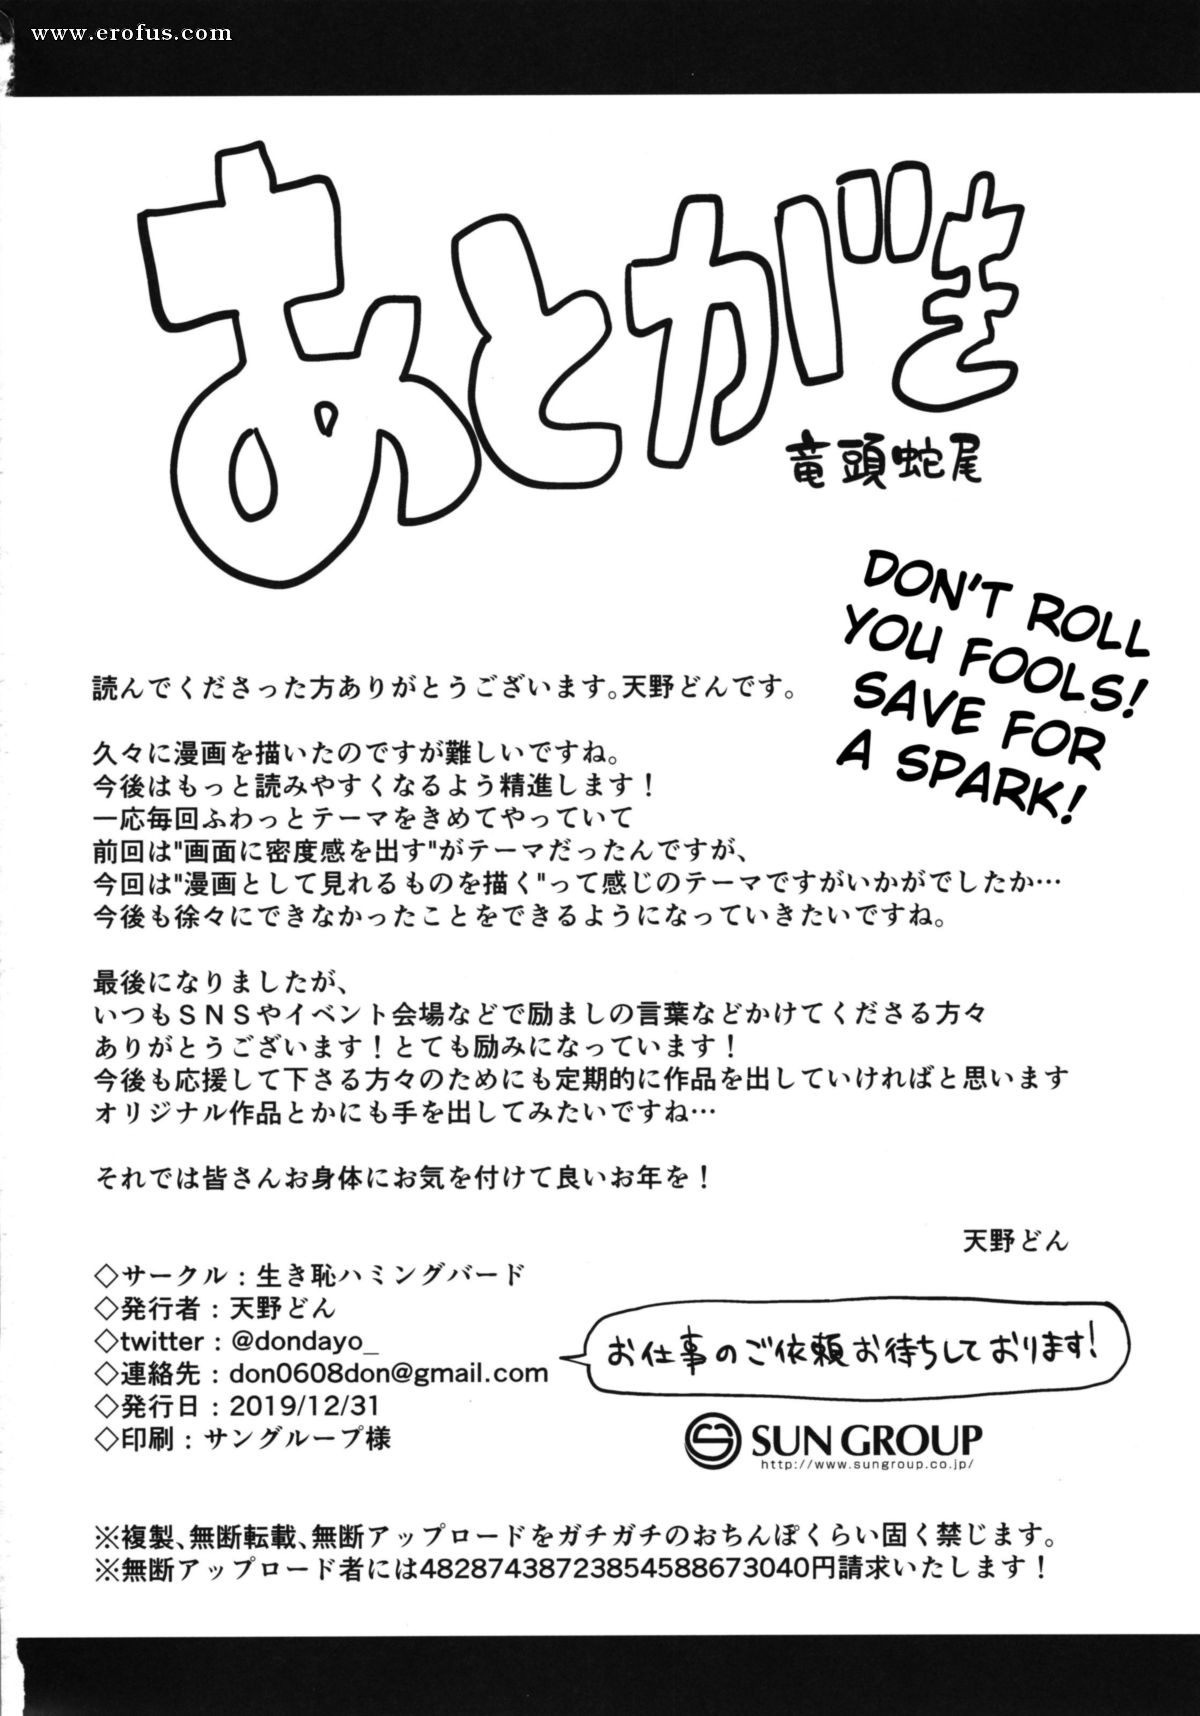 www.erofus.com
あとがき
竜頭蛇尾
DON'T ROLL
YOU FOOLS!
SAVE FOR
A SPARK!
読んでくださった方ありがとうございます。天野どんです。
久々に漫画を描いたのですが難しいですね。
今後はもっと読みやすくなるよう精進します！
一応毎回ふわっとテーマをきめてやっていて
前回は"画面に密度感を出す"がテーマだったんですが、
今回は"漫画として見れるものを描く"って感じのテーマですがいかがでしたか…
今後も徐々にできなかったことをできるようになっていきたいですね。
最後になりましたが、
いつもＳＮＳやイベント会場などで励ましの言葉などかけてくださる方々
ありがとうございます！とても励みになっています！
今後も応援して下さる方々のためにも定期的に作品を出していければと思います
オリジナル作品とかにも手を出してみたいですね…
それでは皆さんお身体にお気を付けて良いお年を！
天野どん
◇サークル：生き恥ハミングバード
◇発行者：天野どん
◇twitter：@dondayo_
◇連絡先：don0608don@gmail.com
◇発行日：2019/12/31
◇印刷：サングループ様
お仕事のご依頼お待ちしております！
SUN GROUP
http://www.sungroup.co.jp/
※複製、無断転載、無断アップロードをガチガチのおちんぽくらい固く禁じます。
※無断アップロード者には482874387238545886730​40円請求いたします！